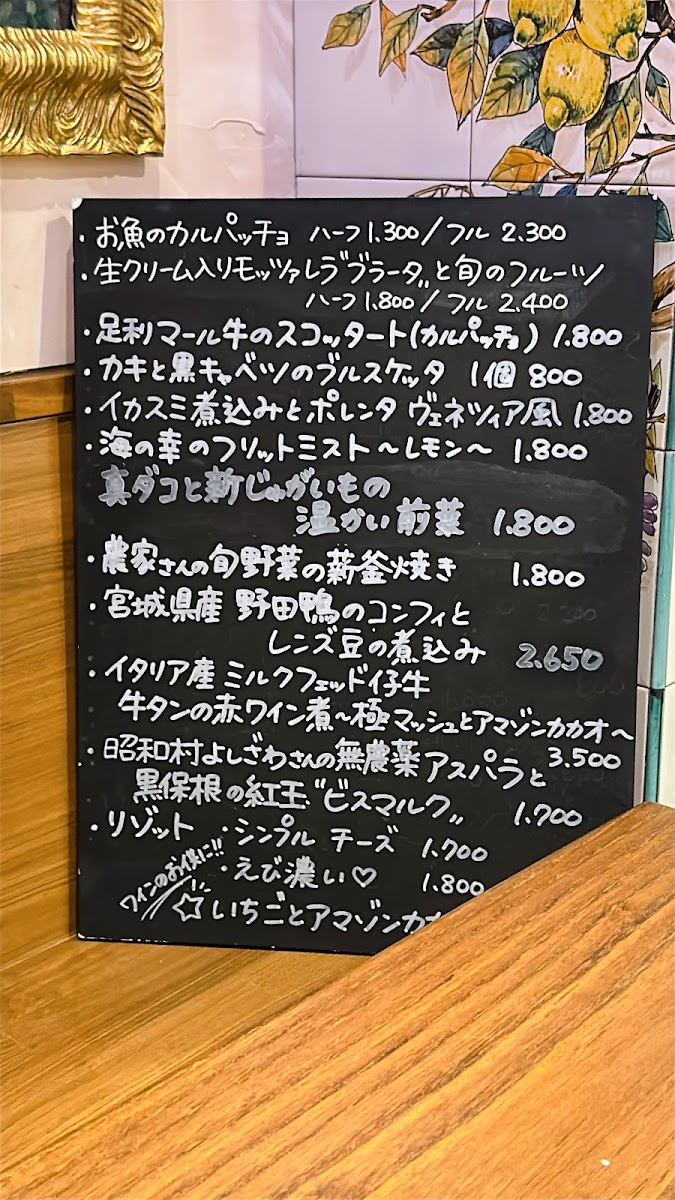 ・お魚のカルパッチョ ハーフ1.300/フル 2.300
・生クリーム入りモッツァレラ"ブラータ"と旬のフルーツ
ハーフ1.800/フル 2.400
・足利マール牛のスコッタート(カルパッチョ) 1.800
・カキと黒キャベツのブルスケッタ 1個 800
・イカスミ煮込みとポレンタ ヴェネツィア風 1.800
・海の幸のフリットミスト〜レモン〜 1.800
真ダコと新じゃがいもの
温かい前菜 1.800
・農家さんの旬野菜の薪釜焼き 1.800
・宮城県産 野田鴨のコンフィと
レンズ豆の煮込み 2.650
・イタリア産 ミルクフェッド仔牛
牛タンの赤ワイン煮〜極マッシュとアマゾンカカオ〜
3.500
・昭和村よしざわさんの無農薬アスパラと
黒保根の紅玉"ビスマルク" 1.700
・リゾット ・シンプル チーズ 1.700
・えび濃い♡ 1.800
ワインのお供に!!
☆いちごとアマゾンカカ